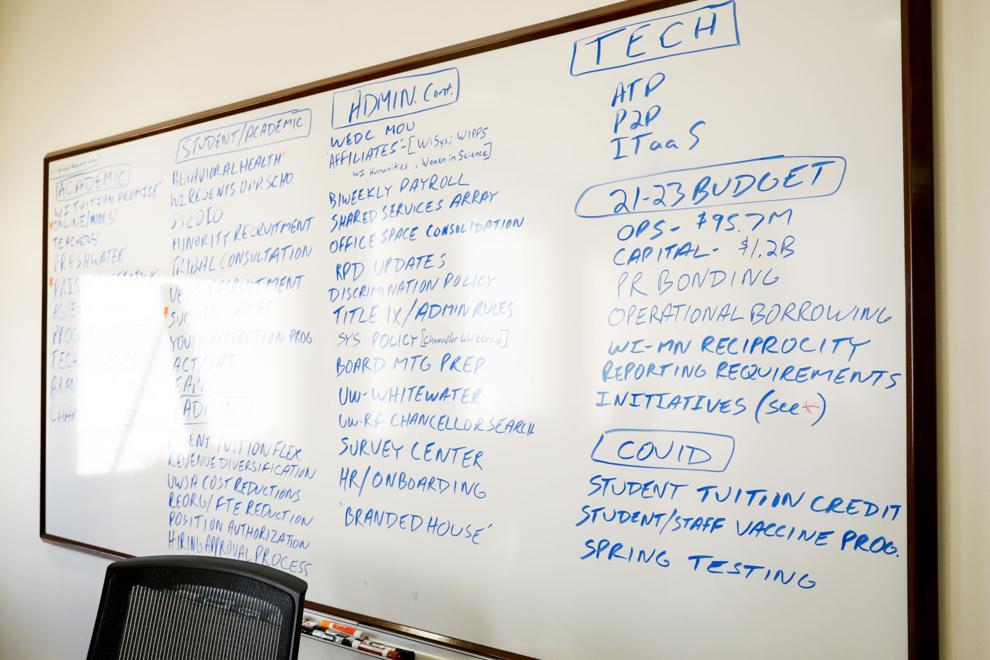 ACADEMIC
WI TUITION PROMISE*
ONLINE/
TEACHERS*
FRESHWATER
STUDENT/ACADEMIC
BEHAVIORAL HEALTH*
WI REGENTS OPP. SCHO.
MINORITY RECRUITMENT
TRIBAL CONSULTATION
VETS RECRUITMENT
SUMMER CAMPS
YOUTH PROTECTION PROG.
ACT/SAT
EAPP
ADMIN
TUITION FLEX
REVENUE DIVERSIFICATION
UWSA COST REDUCTIONS
REORG/FTE REDUCTION
POSITION AUTHORIZATION
HIRING APPROVAL PROCESS
ADMIN. Cont.
WEDC MOU
AFFILIATES - [WiSys; WIPPS
WI Humanities; Women in Science]
BIWEEKLY PAYROLL
SHARED SERVICES ARRAY
OFFICE SPACE CONSOLIDATION
RPD UPDATES
DISCRIMINATION POLICY
TITLE IX/ADMIN RULES
SYS POLICY [Chancellor Workgroup]
BOARD MTG PREP
UW-WHITEWATER
UW-RF CHANCELLOR SEARCH
SURVEY CENTER
HR/ONBOARDING
'BRANDED HOUSE'
TECH
ATP
P2P
ITaaS
21-23 BUDGET
OPS - $95.7M
CAPITAL - $1.2B
PR BONDING
OPERATIONAL BORROWING
WI-MN RECIPROCITY
REPORTING REQUIREMENTS
INITIATIVES (see *)
COVID
STUDENT TUITION CREDIT
STUDENT/STAFF VACCINE PROG.
SPRING TESTING